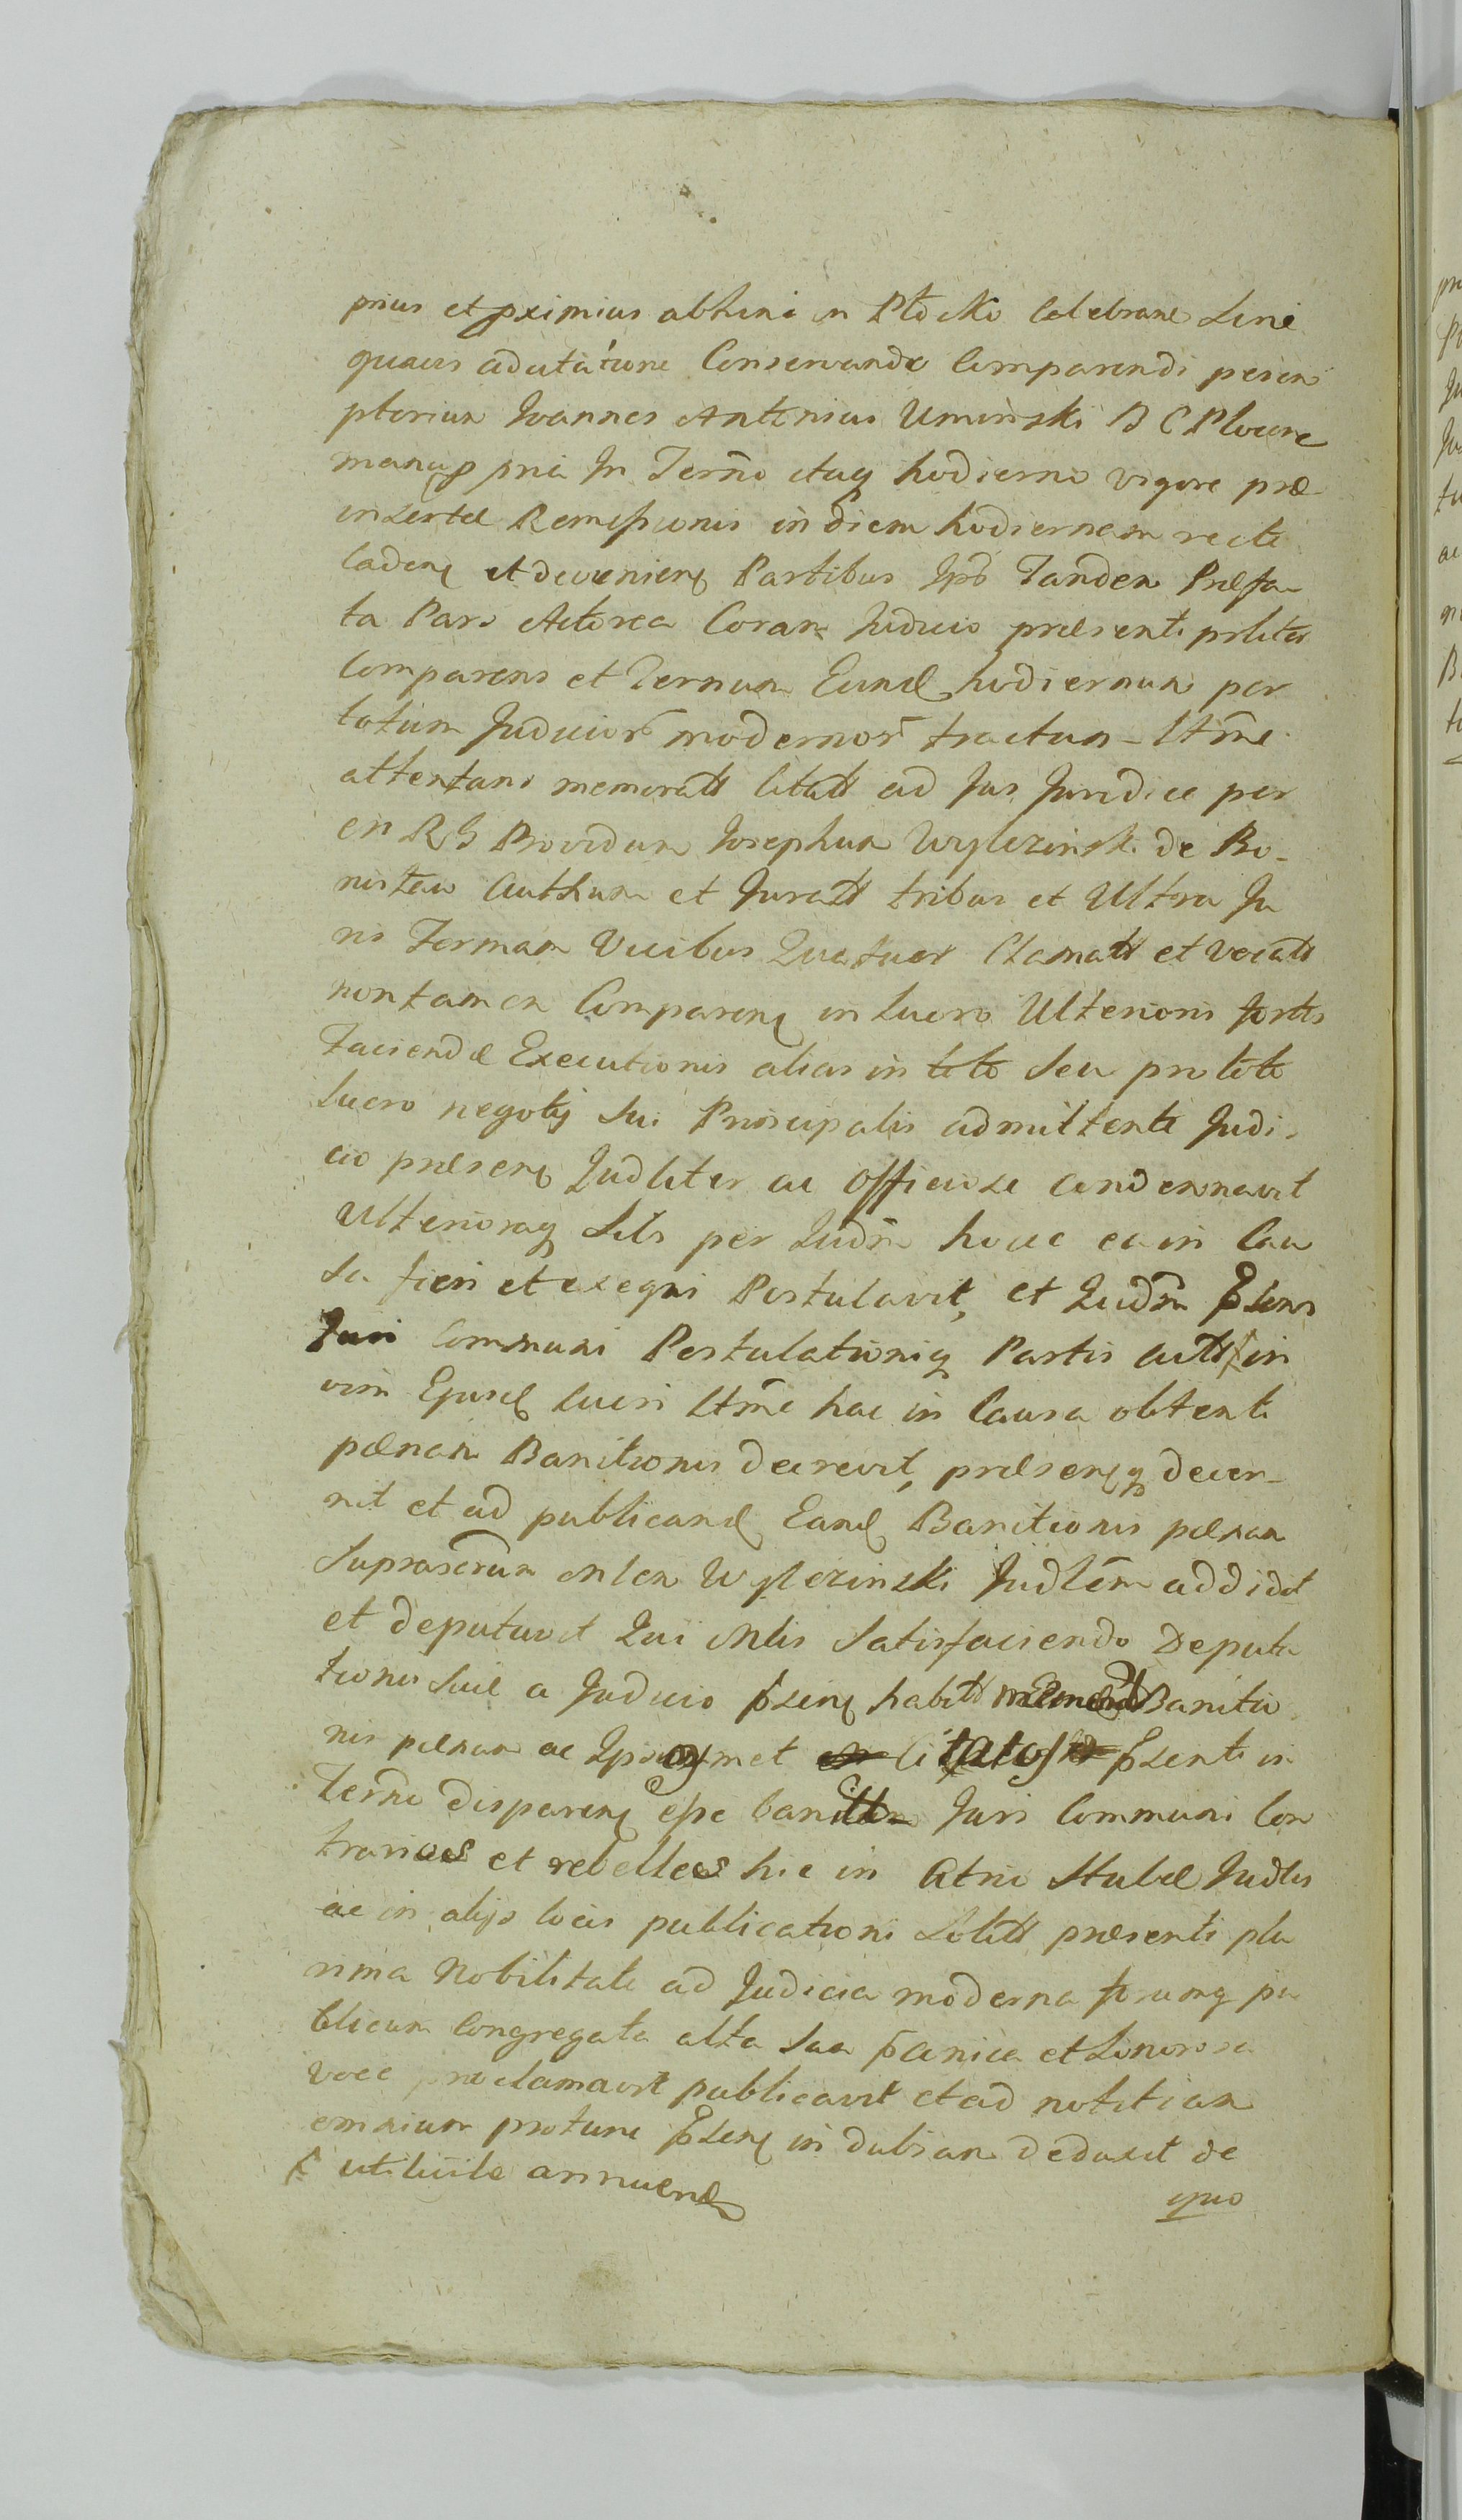 prius et pximius abhinc in Plocko Celebrane Sine
quavis adcitatione Conservande Comparendi perem
ptorium Joannes Antonius Uminski B C Plocene
manupp pria In Termo itaq hodierno vigore præ
insertæ Remissionis in diem hodiernam recte
Caden et devenien Partibus Ipis Tandem Præfa
ta Pars Actorea Coram Judicio præsenti prlter
Comparens et Ternum Eund hodiernum per
totum Judicior modernor tractum Ltme
attentans memoratt Citatt ad Jus Juridice per
en R G Providum Josephum Wylezinski de Bo-
nislaw Authum et Juratt tribus et Ultra Ju
ris Formam Vicibus Quatuor Clamatt et vocatt
non tamen Comparen in Lucro Ulterioris fortis
Faciendæ Executionis alias in toto Seu pro toto
Lucro negotij Sui Principalis admittente Judi
cio præsen Judliter ac Officiose Condemnavit
Ulterioraq Sibi per Judm hocce ea in Cau
sa fieri et exequi Postulavit, et Judm psens
Juri Communi Postulationiq Partis Actt in
vim Ejusd Lucri Ltme hac in Causa obtenti
pænam Banitionis decrevit, præsenq decer-
nit et ad publicand Eand Banitionis pænam
Suprascrum mlem Wylezinski Judlem addidit
et deputavit Qui Mlis Satisfaciendo Deputa
tioni Suæ a Judicio psen habitt Banitio
nis pænam ac Ipsosmet Citatos psenti in
Termo disparen esse banitt Juri Communi Con
trarios et rebelles hic in Atrio Stubæ Judlis
ac in alijs locis publicationi Solitt præsenti plu
rima Nobilitate ad Judicia moderna forumq pu
blicum Congregata alta Sua pconica et Sonorosa
voce proclamavit publicavit et ad notitiam
omnium protunc psen in dubiam deduxit de
utibile annuend
quo